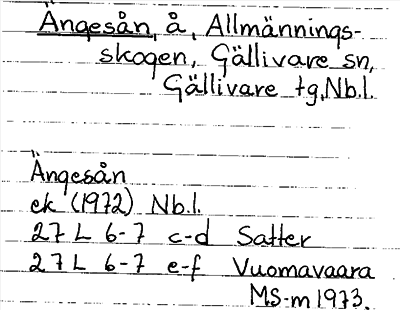 Ängesån, å, Allmännings-
skogen, Gällivare sn,
Gällivare tg, Nb.l.
Ängesån
ek (1972) Nb.l.
27 L 6-7 c-d Satter
27 L 6-7 e-f Vuomavaara
MS-m 1973.